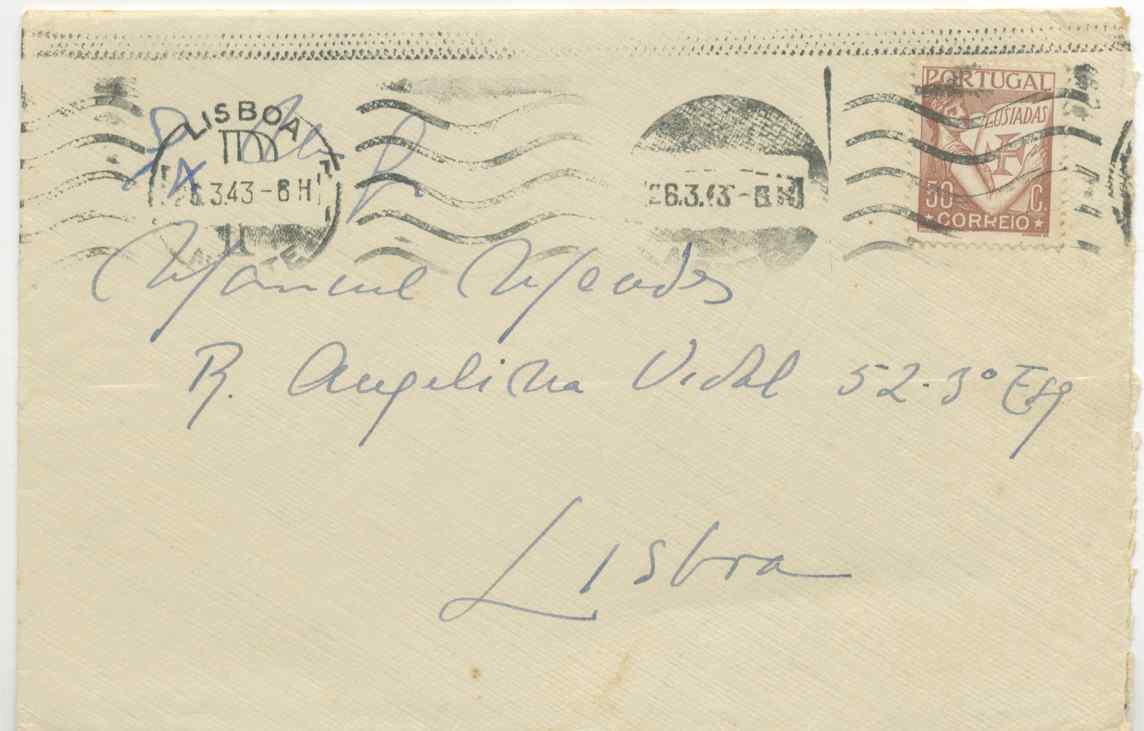 LISBOA
26.3.43-8H
26.3.43-8H
PORTUGAL
LUSIADAS
50 C.
CORREIO
Exmo Sr.
Manuel Mendes
R. Angelina Vidal 52-3º Esq
Lisboa